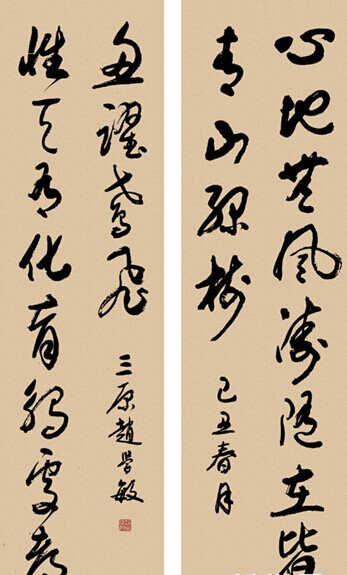 心地無風濤隨在皆
青山綠樹
己丑春月
性天有化育觸處都
魚躍鳶飛
三原趙學敏